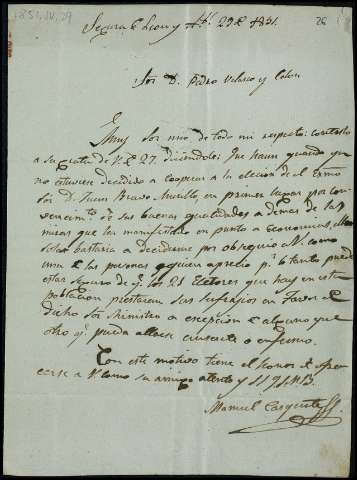 1851.IV.29
26
Segura de Leon y Ab.l 29 de 1851.
Sor D. Pedro Velasco y Colon
Muy Sor mio de todo mi respeto: contesto
a su grata de V. de 27. diciendole: Que haun quando yo
no estuviese decidido a cooperar a la eleccion de el Exmo
Sor D. Juan Bravo Murillo en primer lugar por con
vencim.to de sus buenas qualidades a demas de las
mismas que ha manifestado en punto a Economias,
bastaria a decidirme por obsequio a V. como
una de las personas a quien aprecio p.r lo tanto puede
estar seguro de q.e los 21 Electores que hay en esta
poblacion prestaran sus sufragios en favor de
dicho Sor Ministro a escepcion de alguno que
otro q.e pueda allarse ausente o enfermo.
Con este motivo tiene el honor de ofre
cerse a V. como su amigo atento y S.S.Q.S.M.B.
Manuel Casquete